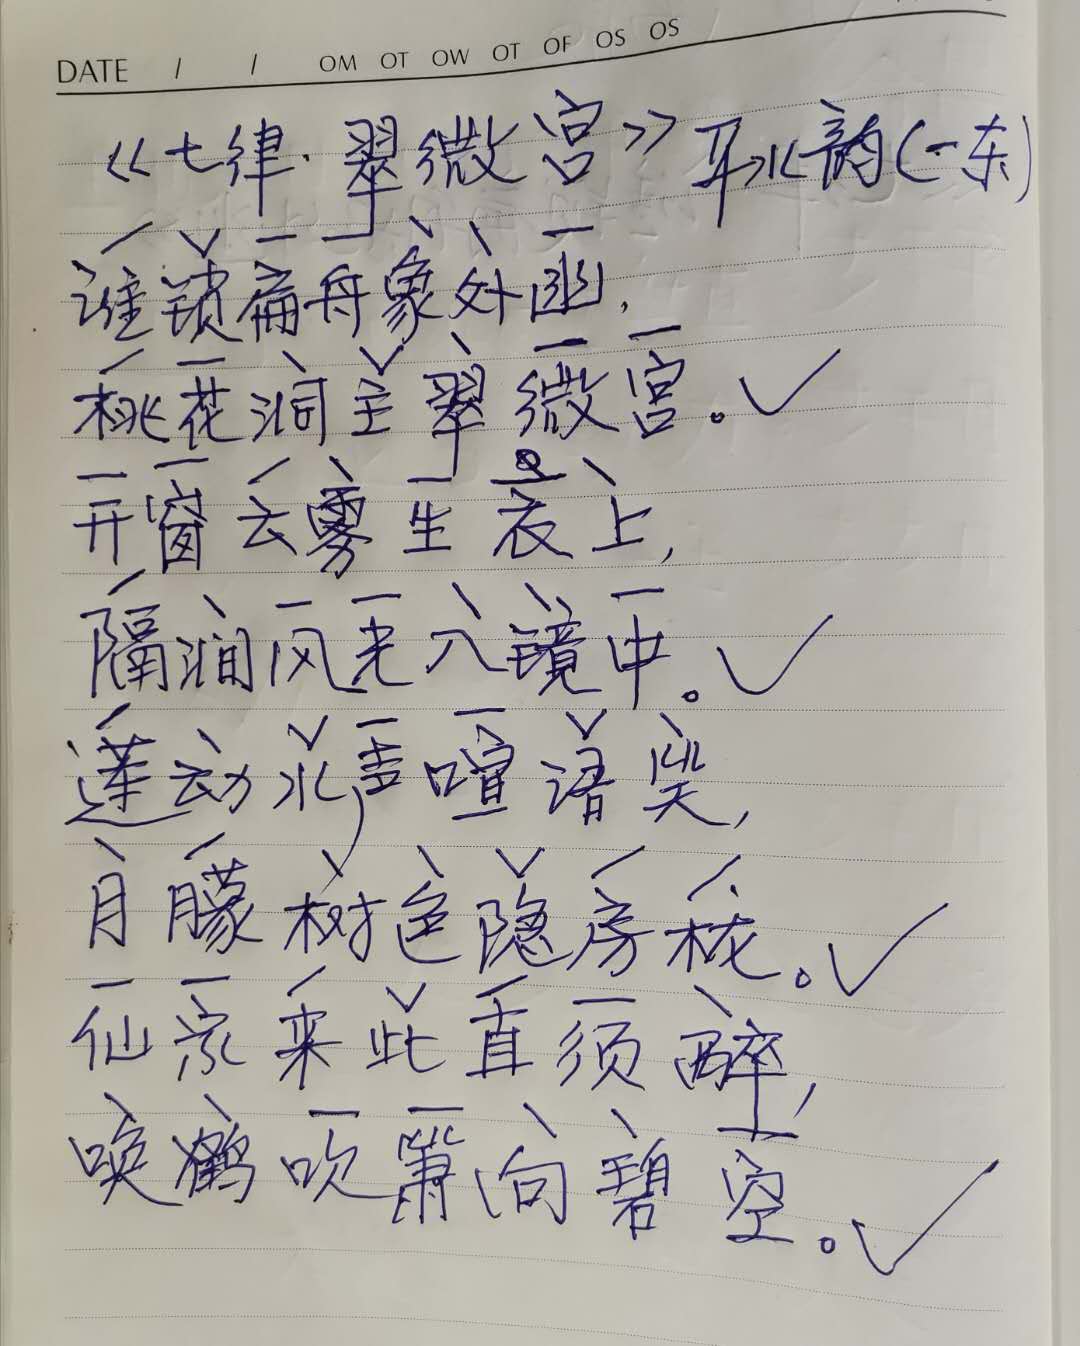 DATE / / OM OT OW OT OF OS OS
《七律·翠微宫》平水韵(一东)
谁锁扁舟象外幽,
桃花洞主翠微宫。
开窗云雾生衣上,
隔涧风光入镜中。
莲动水声喧语笑,
月朦树色隐房栊。
仙家来此直须醉,
唤鹤吹箫向碧空。